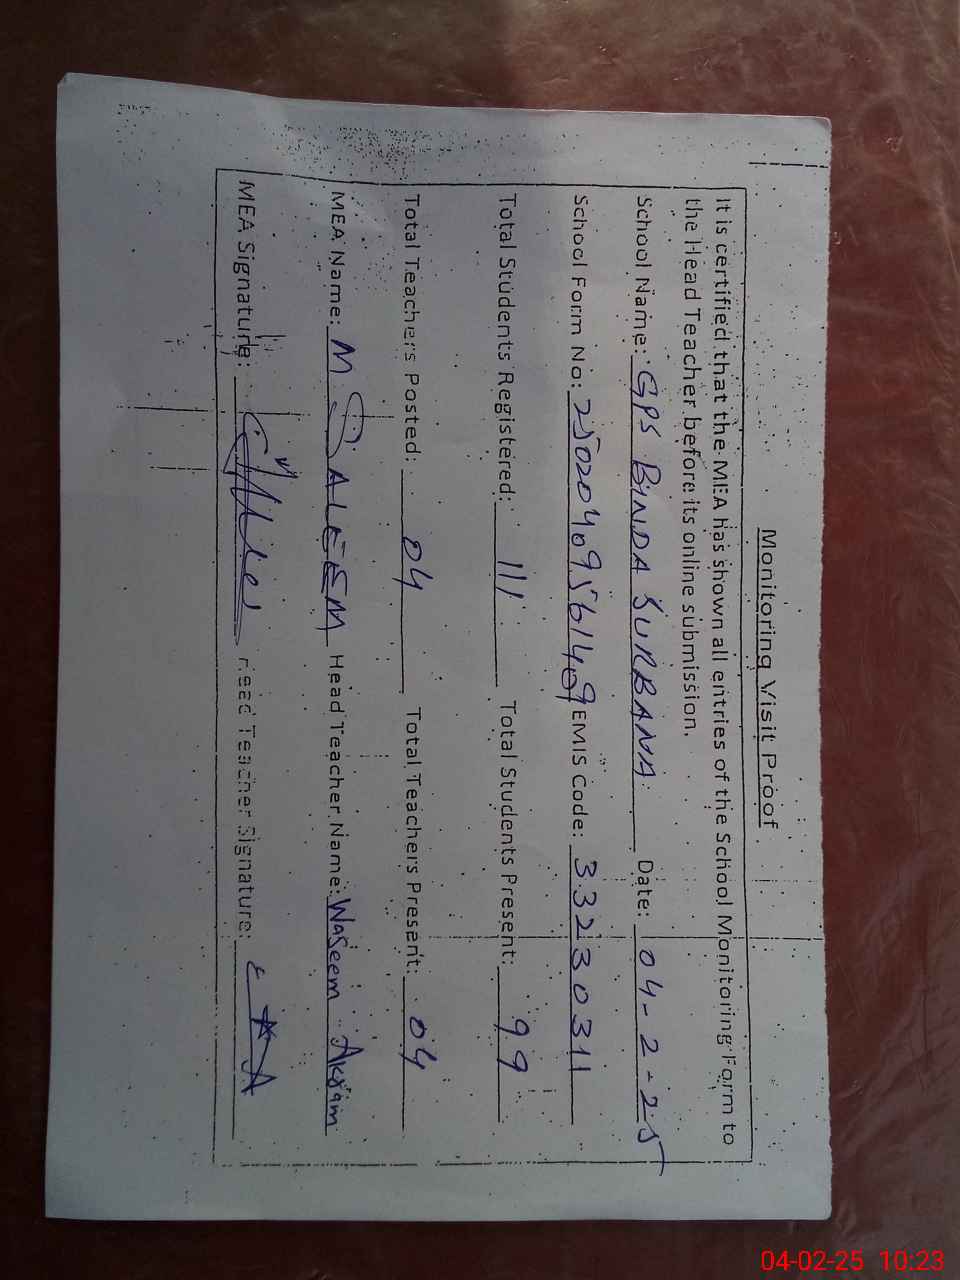 Monitoring Visit Proof
It is certified that the MEA has shown all entries of the School Monitoring Form to
the Head Teacher before its online submission.
School Name: GPS BINDA SURBANA Date: 04-2-25
School Form No: EMIS Code: 33230311
Total Students Registered: 111 Total Students Present: 99
Total Teachers Posted: 04 Total Teachers Present: 04
MEA Name: M SALEEM Head Teacher Name: Waseem Akram
MEA Signature: Head Teacher Signature:
04-02-25 10:23